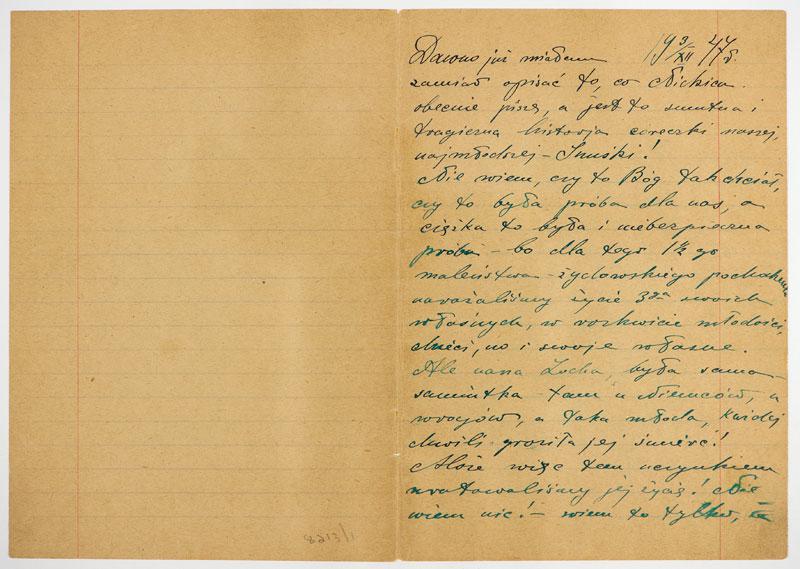 19 3/XII 47 r.
Dawno już miałam
zamiar opisać to, co
obecnie piszę, a jest to smutna i
tragiczna historja córeczki naszej,
najmłodszej – Inuśki!
Nie wiem, czy to Bóg tak chciał,
czy to była próba dla nas, a
ciężka to była i niebezpieczna
próba – bo dla tego 1½ go
maleństwa – żydowskiego pochodzenia
narażaliśmy życie 3ga swoich
własnych, w rozkwicie młodości,
dzieci, no i swoje własne.
Ale nasza Zocha, była sama
samiutka tam u Niemców, u
wrogów, a taka młoda, każdej
chwili groziła jej śmierć!
Może więc tem uczynkiem
uratowaliśmy jej życie! Nie
wiem nic! – wiem to tylko, że
8213/1